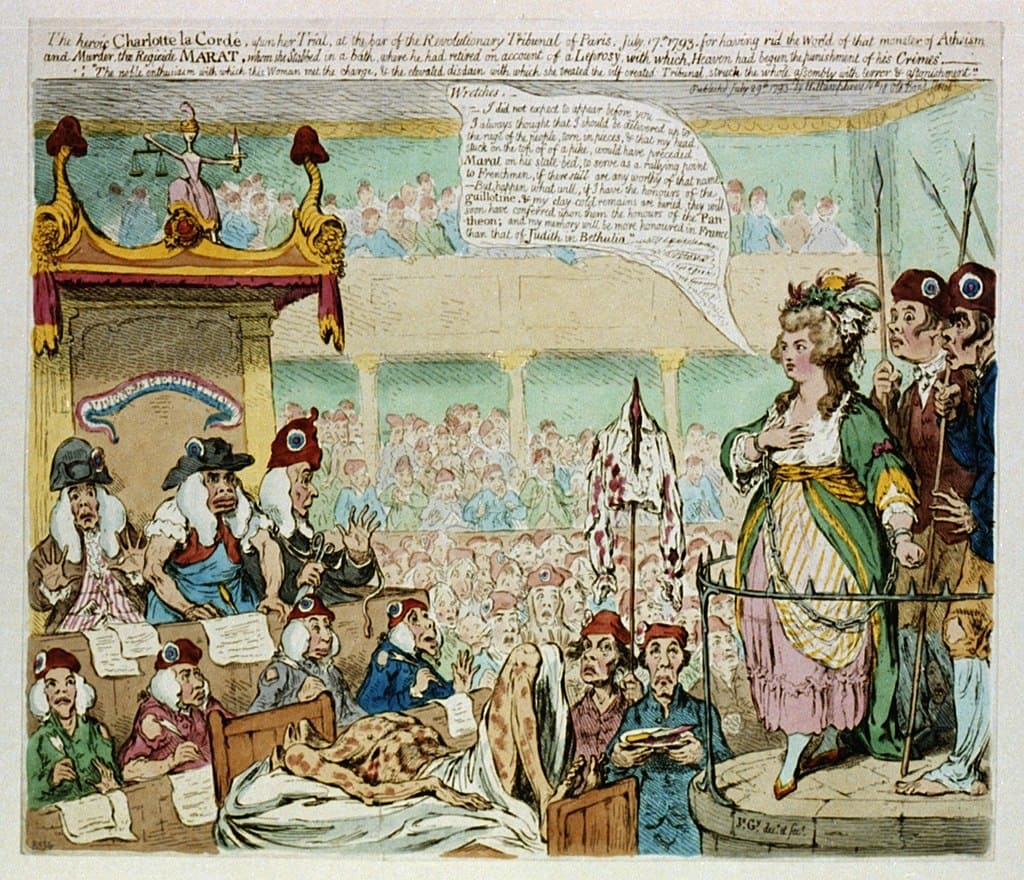 The heroic Charlotte la Cordé, upon her Trial, at the bar of the Revolutionary Tribunal of Paris, July 17th 1793, for having rid the World of that monster of Atheism
and Murder, the Regicide MARAT, whom she Stabbed in a bath, where he had retired on account of a Leprosy, with which, Heaven had begun the punishment of his Crimes.
"The noble enthusiasm with which this Woman met the charge, & the elevated disdain with which she treated the self created Tribunal, struck the whole assembly with terror & astonishment."
Publish'd July 29th 1793. by H. Humphrey No 18 Old Bond Street
Wretches,
— I did not expect to appear before you —
I always thought that I should be delivered up to
the rage of the people, torn in pieces, & that my head,
stuck on the top of a pike, would have preceded
Marat on his state bed, to serve as a rallying point
to Frenchmen, if there still are any worthy of that name
— But, happen what will, if I have the honours of the
guillotine, & my clay cold remains are buried, they will
soon have conferred upon them the honours of the Pan-
theon; and my memory will be more honoured in France
than that of Judith in Bethulia."
Js. Gy. des. et fect.